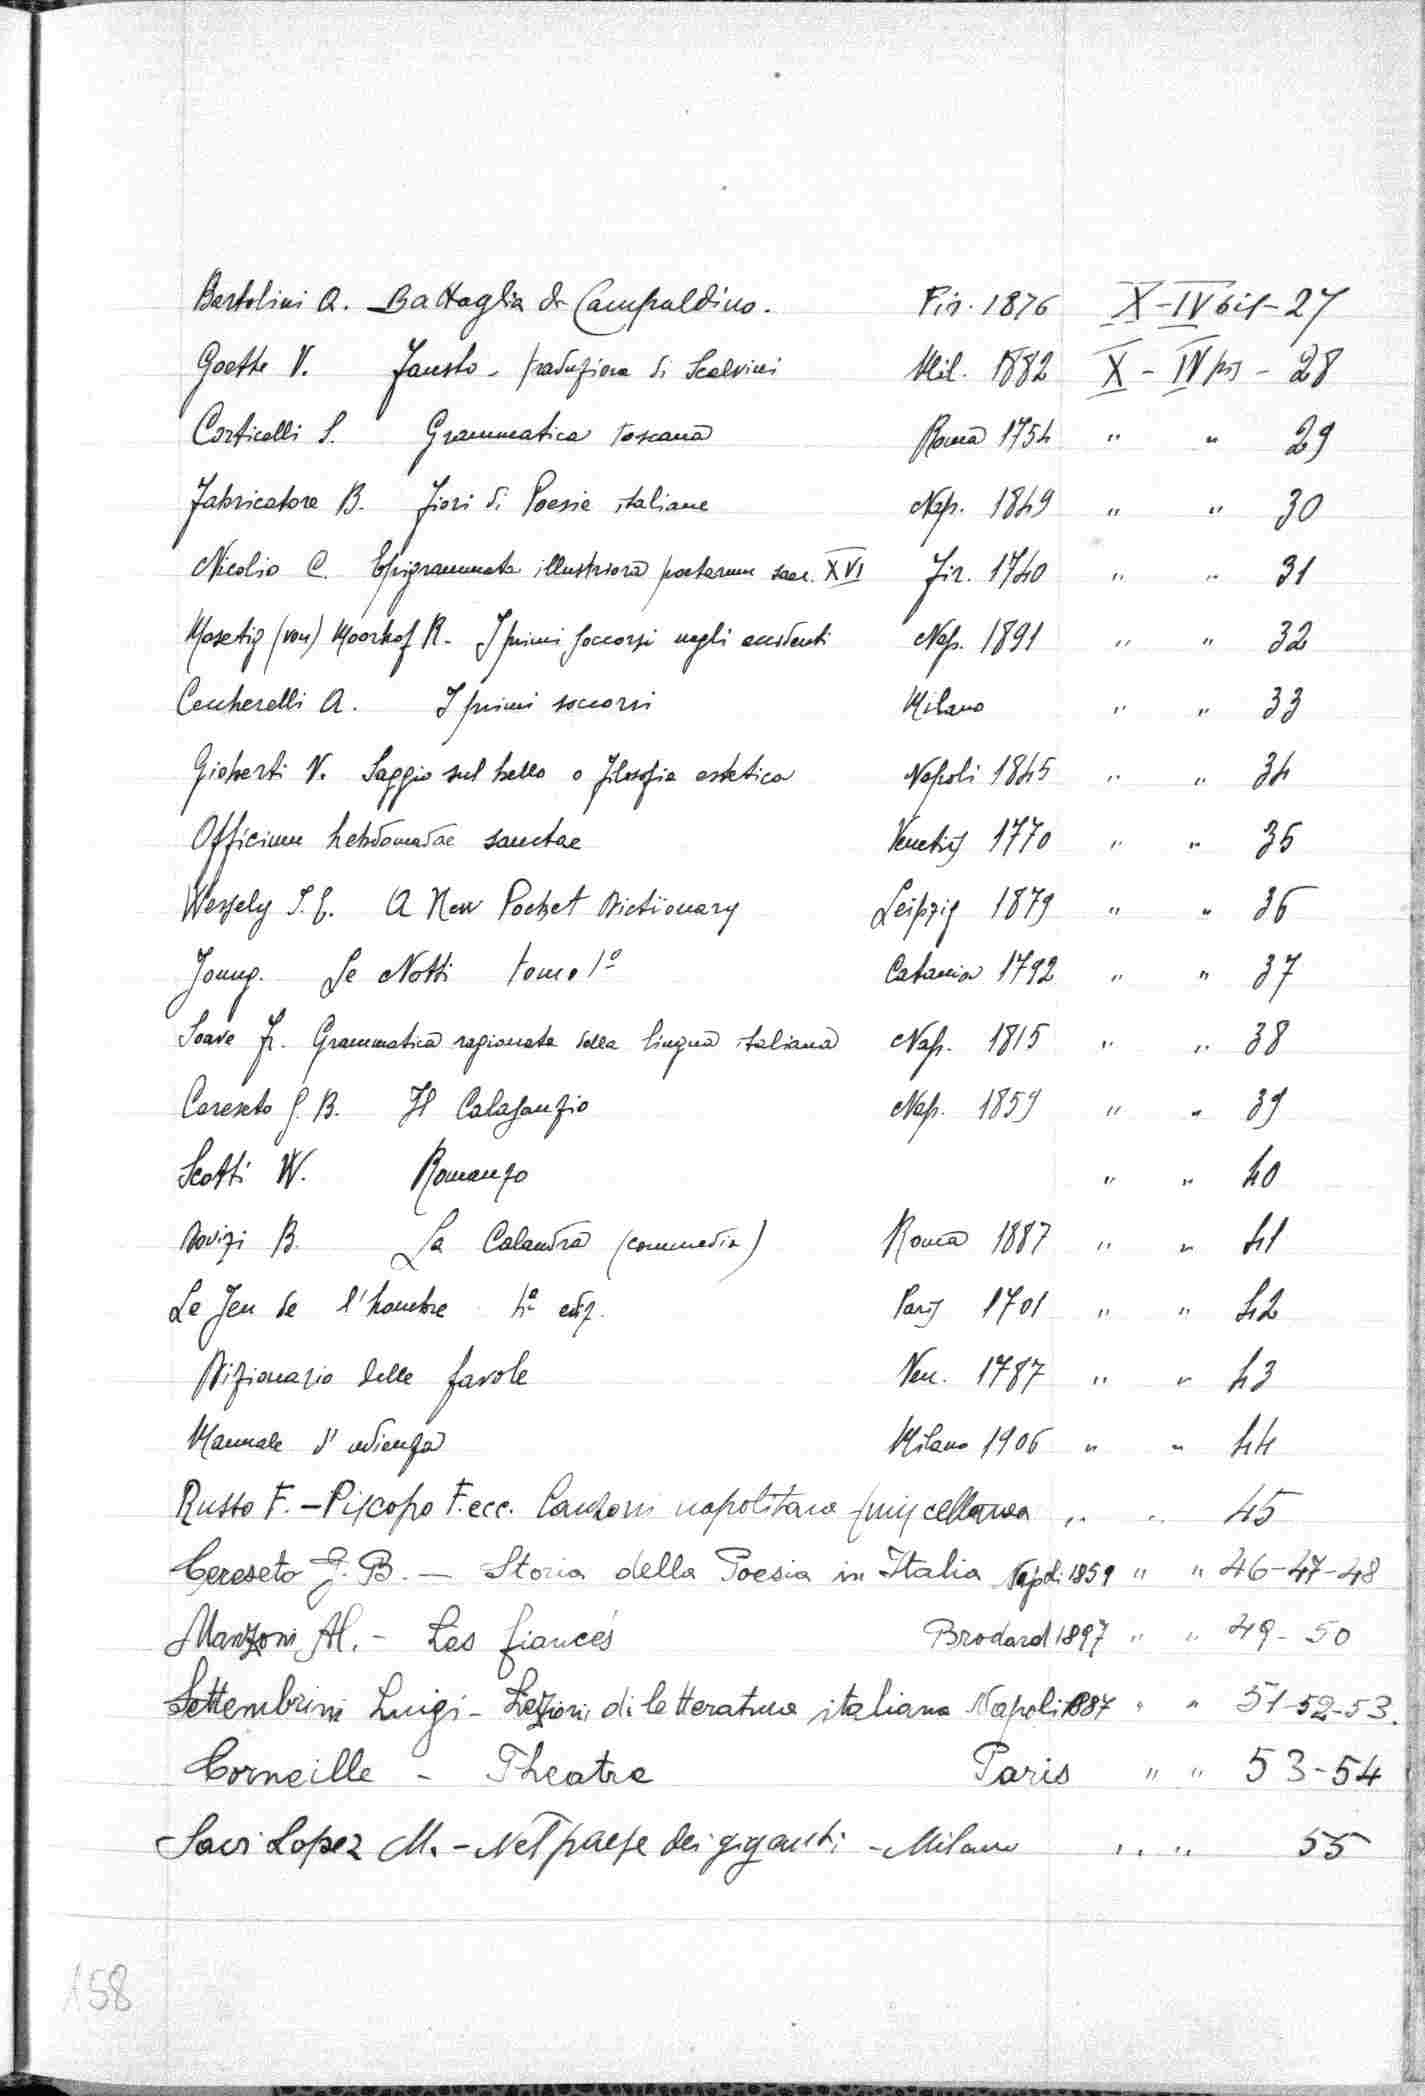 Bartolini A. - Battaglia di Campaldino. Fir. 1876 X - IV bis - 27
Goethe V. Fausto - traduzione di Scalvini Mil. 1882 X - IV bis - 28
Corticelli S. Grammatica toscana Roma 1754 " " 29
Fabricatore B. Fiori di Poesie italiane Nap. 1849 " " 30
Nicolio C. Epigrammata illustriora poetarum saec. XVI Fir. 1740 " " 31
Mosetig (von) Moorhof R. - I primi soccorsi negli accidenti Nap. 1891 " " 32
Ceccherelli A. I primi soccorsi Milano " " 33
Gioberti V. Saggio sul bello o filosofia estetica Napoli 1845 " " 34
Officium hebdomadae sanctae Venetiis 1770 " " 35
Wessely I. E. A New Pocket Dictionary Leipzig 1879 " " 36
Joung. Le Notti tomo 1º Catania 1792 " " 37
Soave Fr. Grammatica ragionata della lingua italiana Nap. 1815 " " 38
Cereseto G. B. Il Calasanzio Nap. 1859 " " 39
Scotti W. Romanzo " " 40
Dovizi B. La Calandra (commedia) Roma 1887 " " 41
Le Jeu de l'hombre 4ª ediz. Paris 1701 " " 42
Dizionario delle favole Ven. 1787 " " 43
Manuale d'udienza Milano 1906 " " 44
Russo F. - Piscopo F. ecc. Canzoni napolitane (miscellanea " " 45
Cereseto G. B. - Storia della Poesia in Italia Napoli 1859 " " 46-47-48
Manzoni Al. - Les fiancés Brodard 1897 " " 49-50
Settembrini Luigi - Lezioni di letteratura italiana Napoli 1887 " " 51-52-53.
Corneille - Theatre Paris " " 53-54
Savi Lopez M. - Nel paese dei giganti - Milano " " 55
158